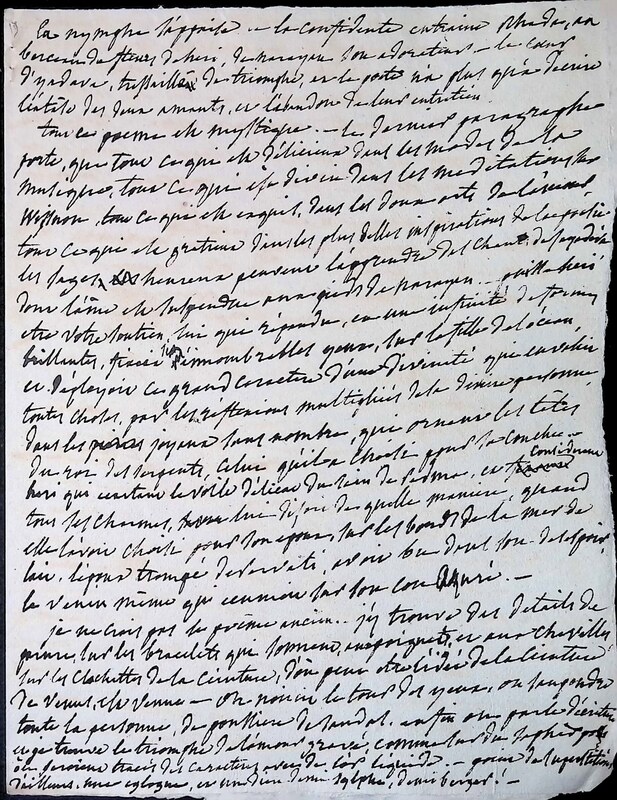 La nymphe s'appaise – la confidente entraine Rhada, au
berceau de fleurs de heri, de narayan son adorateur – le cœur
d'yadava, tressaille de triomphe, et le poete n'a plus qu'a decrire
l'extase des deux amants, et l'abandon de leur entretien.
tout ce poeme est mystique. – le dernier paragraphe
porte, que tout ce qui est delicieux dans les modes de la
musique, tout ce qui est divin dans les meditations sur
Wishnou, tout ce qui est exquis, dans les doux arts de l'amour
tout ce qui est gratieux dans les plus belles inspirations de la poesie
les sages, heureux peuvent l'apprendre des chants de jayadeva
dont l'ame est suspendue aux pieds de narayan – puisse heri
etre votre soutien, lui qui repandu, en une infinité de formes
brillantes, d'innombrables yeux, sur la fille de l'ocean,
et deployoit ce grand caractere d'une divinité qui
toutes choses, par les réflexions multipliées de la divine personne
dans les joyaux sans nombre, qui ornent les têtes
du roi des serpents, celui qu'il a choisi pour sa couche –
lui qui ecartant le voile délicat du sein de Padma, et considerant
tous ses charmes, lui disoit de quelle maniere, quand
elle l'avoit choisi pour son epoux, sur les bords de la mer de
lait, l'epoux trompé de Parvati, avoit bu dans son desespoir
le venin même qui son cou azuré. –
je ne crois pas ce poëme ancien. j'y trouve des details de
parure, sur les bracelets qui sonnent, aux poignets, et aux chevilles
sur les clochettes de la ceinture, d'où peut etre l'idée de la ceinture
de Venus, est venue – on noircit le tour des yeux, on saupoudre
toute la personne, de poussiere de sandal, enfin on parle d'ecriture
et je trouve le triomphe de l'amour gravé, comme sur du saphir poli
où seroient tracés des caracteres avec de l'or liquide. – point de superstitions,
d'ailleurs, une eglogue, et un dieu demi sylphe, demi berger! –